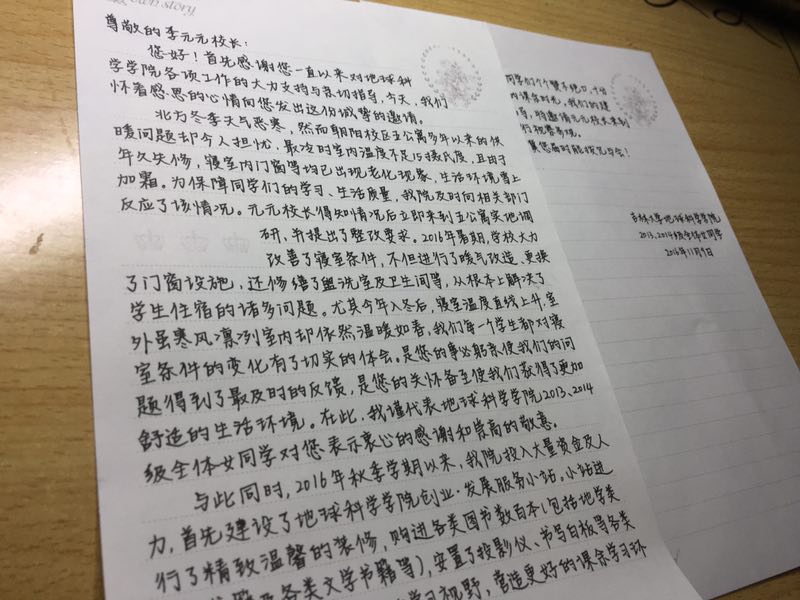 own story
尊敬的李元元校长:
您好!首先感谢您一直以来对地球科
学学院各项工作的大力支持与亲切指导,今天,我们
怀着感恩的心情向您发出这份诚挚的邀请。
北方冬季天气恶寒,然而朝阳校区五公寓多年以来的供
暖问题却令人担忧,最冷时室内温度不足15摄氏度,且由于
年久失修,寝室内门窗等均已出现老化现象,生活环境雪上
加霜。为保障同学们的学习、生活质量,我院及时向相关部门
反应了该情况。元元校长得知情况后立即来到五公寓实地调
研,并提出了整改要求。2016年暑期,学校大力
改善了寝室条件,不但进行了暖气改造,更换
了门窗设施,还修缮了盥洗室及卫生间等,从根本上解决了
学生住宿的诸多问题。尤其今年入冬后,寝室温度直线上升,室
外虽寒风凛冽室内却依然温暖如春,我们每一个学生都对寝
室条件的变化有了切实的体会,是您的事必躬亲使我们的问
题得到了最及时的反馈,是您的关怀备至使我们获得了更加
舒适的生活环境。在此,我谨代表地球科学学院2013、2014
级全体女同学对您表示衷心的感谢和崇高的敬意。
与此同时,2016年秋季学期以来,我院投入大量资金及人
力,首先建设了地球科学学院创业·发展服务小站。小站进
行了精致温馨的装修,购进各类图书数百本(包括地学类
及各类文学书籍等),安置了投影仪、书写白板等各类
学习视野,营造更好的课余学习环
同学们个个赞不绝口,十分
课余时光,我们的建
特邀请元元校长来到
行视察参观。
冀您届时能拨冗与会!
吉林大学地球科学学院
2013、2014级全体女同学
2016年11月9日